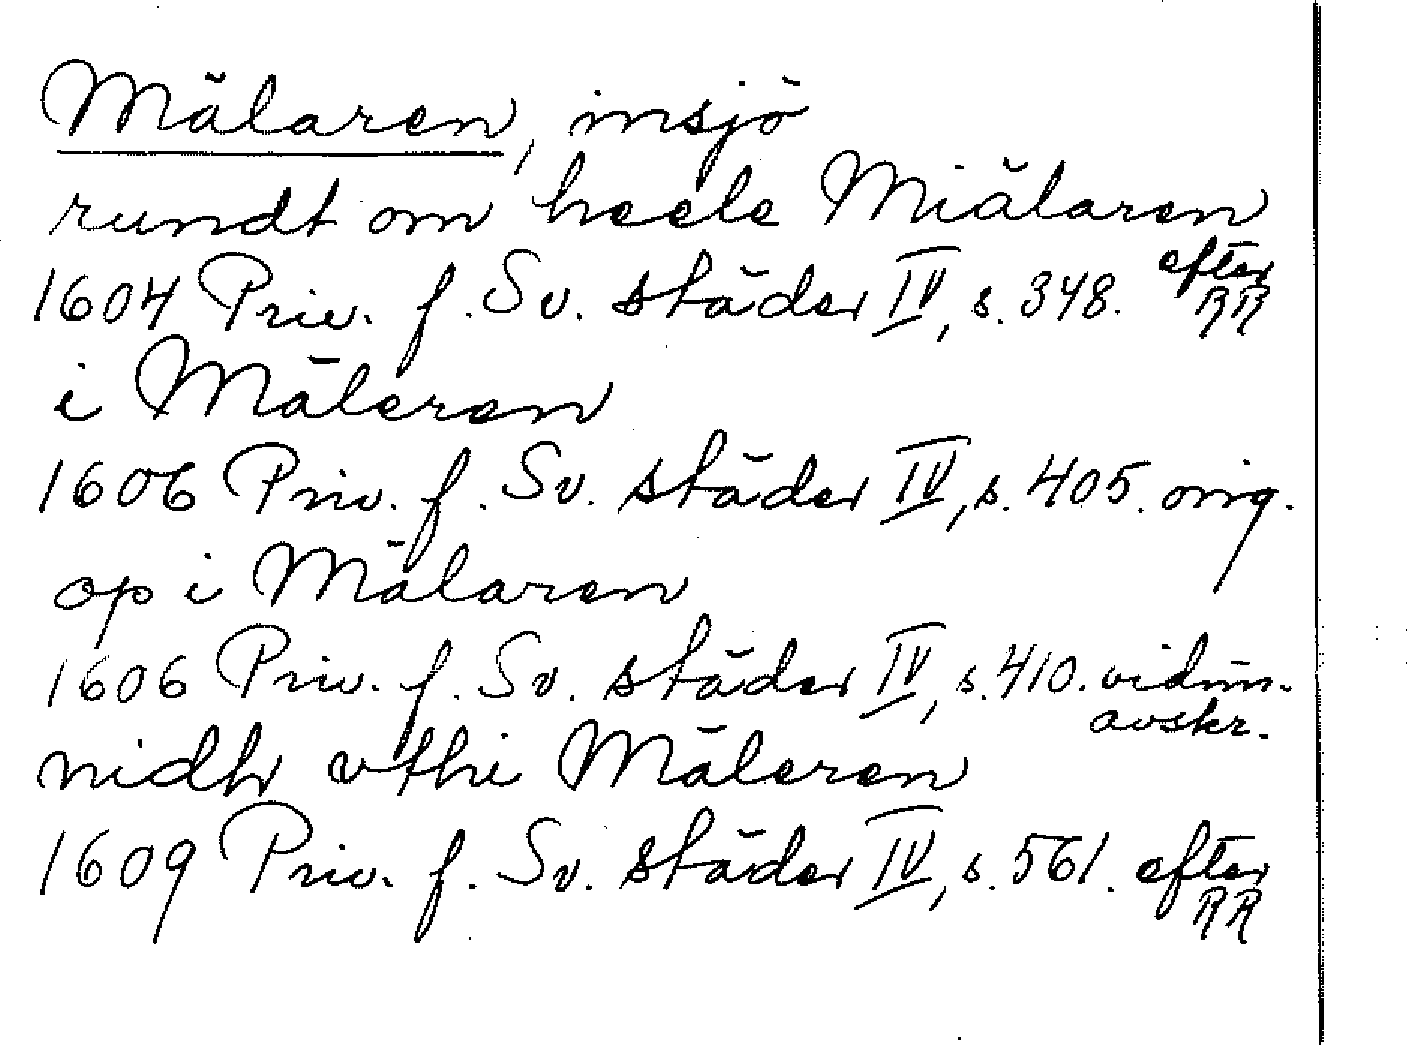 Mälaren, insjö
rundt om heele Miälaren
1604 Priv. f. Sv. städer IV, s. 348. efter RR
i Mäleren
1606 Priv. f. Sv. städer IV, s. 405. orig.
op i Mälaren
1606 Priv. f. Sv. städer IV, s. 410. vidim. avskr.
nidh vthi Mäleren
1609 Priv. f. Sv. städer IV, s. 561. efter RR